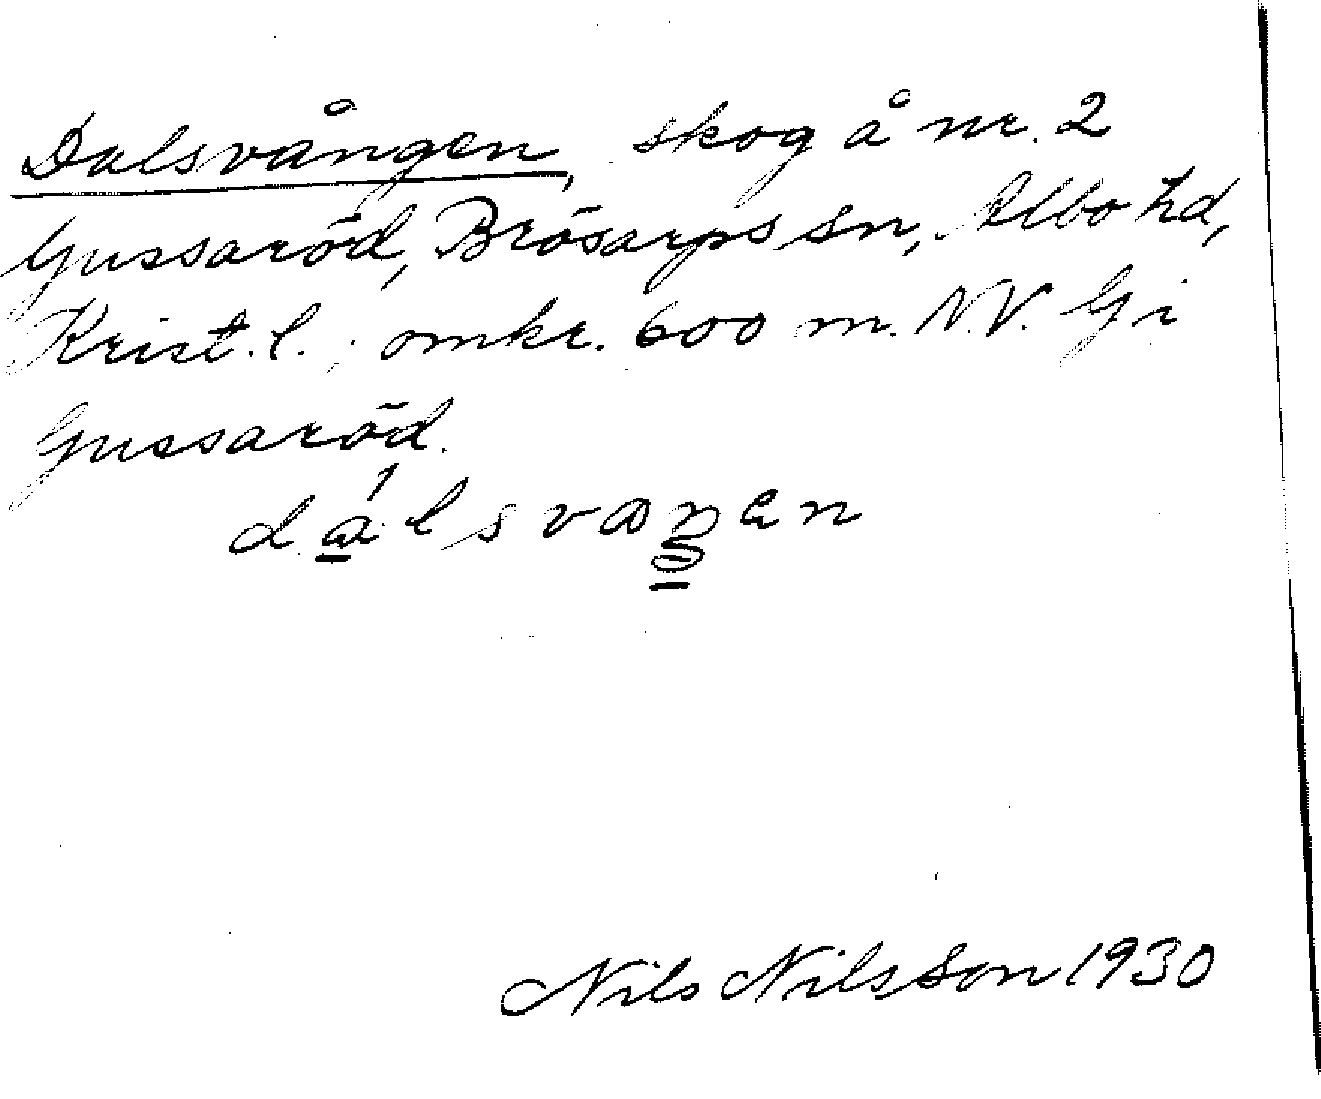 Dalsvången, skog å nr. 2
Gussaröd, Brösarps sn, Albo hd,
Krist. l.; omkr. 600 m. N.V. G i
Gussaröd.
dálsvaŋen
Nils Nilsson 1930